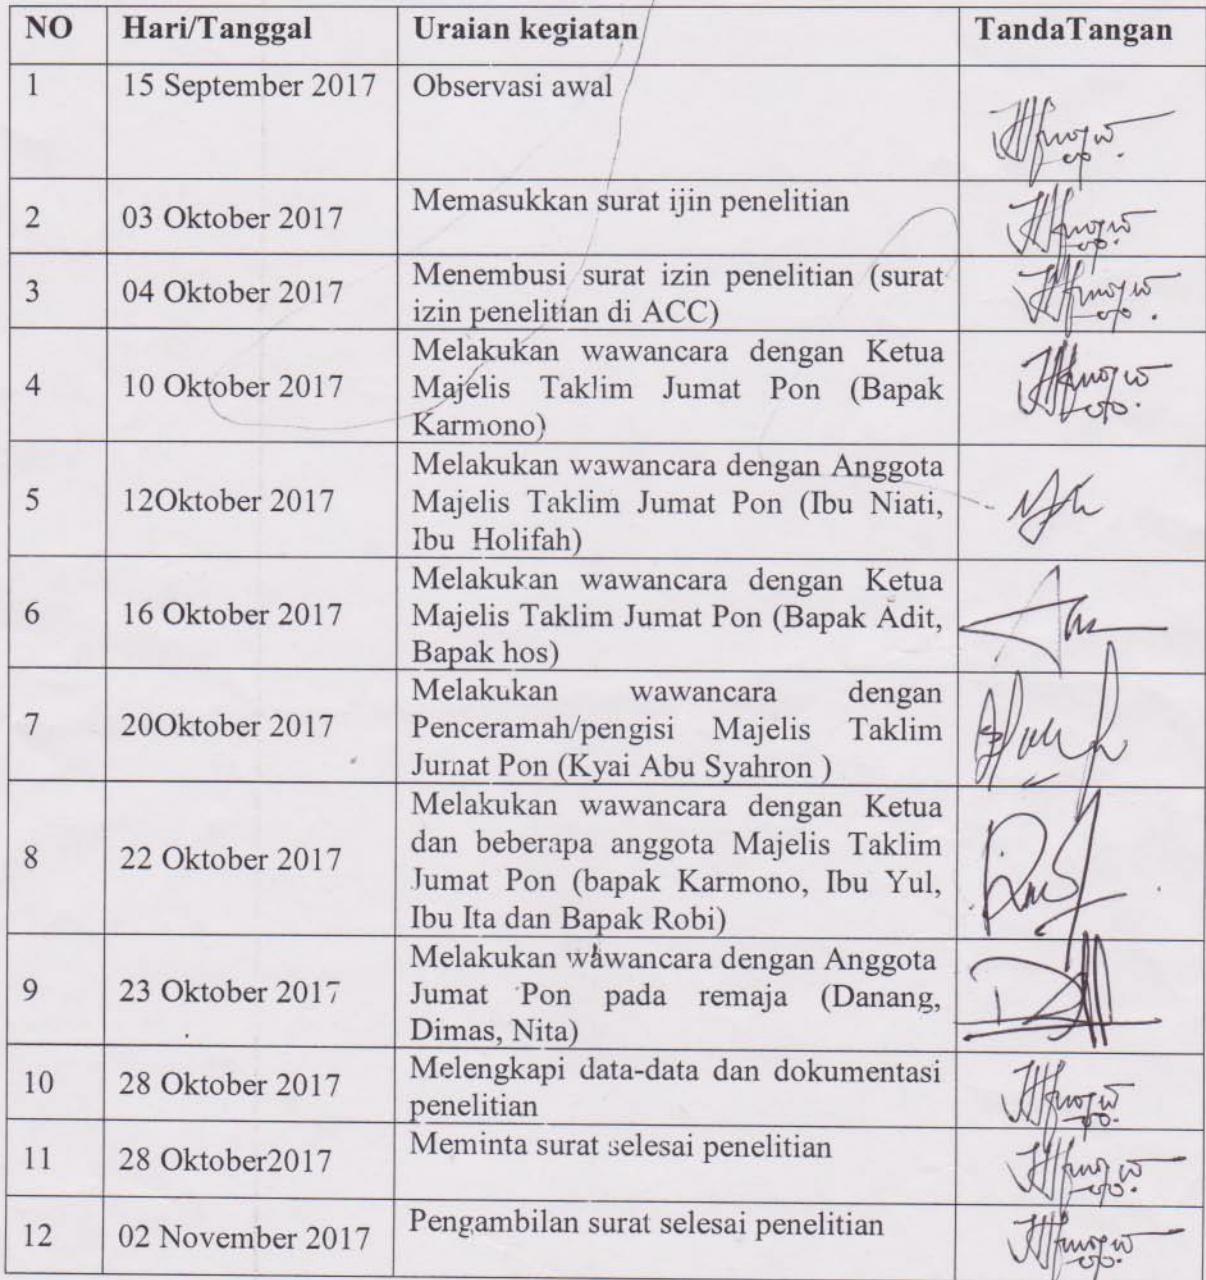 NO Hari/Tanggal Uraian kegiatan TandaTangan
1 15 September 2017 Observasi awal
2 03 Oktober 2017 Memasukkan surat ijin penelitian
3 04 Oktober 2017 Menembusi surat izin penelitian (surat
izin penelitian di ACC)
4 10 Oktober 2017 Melakukan wawancara dengan Ketua
Majelis Taklim Jumat Pon (Bapak
Karmono)
5 12Oktober 2017 Melakukan wawancara dengan Anggota
Majelis Taklim Jumat Pon (Ibu Niati,
Ibu Holifah)
6 16 Oktober 2017 Melakukan wawancara dengan Ketua
Majelis Taklim Jumat Pon (Bapak Adit,
Bapak hos)
7 20Oktober 2017 Melakukan wawancara dengan
Penceramah/pengisi Majelis Taklim
Jumat Pon (Kyai Abu Syahron )
8 22 Oktober 2017 Melakukan wawancara dengan Ketua
dan beberapa anggota Majelis Taklim
Jumat Pon (bapak Karmono, Ibu Yul,
Ibu Ita dan Bapak Robi)
9 23 Oktober 2017 Melakukan wawancara dengan Anggota
Jumat Pon pada remaja (Danang,
Dimas, Nita)
10 28 Oktober 2017 Melengkapi data-data dan dokumentasi
penelitian
11 28 Oktober2017 Meminta surat selesai penelitian
12 02 November 2017 Pengambilan surat selesai penelitian